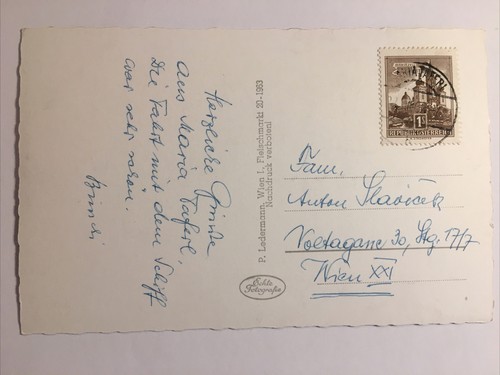 Herzliche Grüße
aus Maria Taferl,
Die Fahrt mit dem Schiff
war sehr schön.
P. Ledermann, Wien I., Fleischmarkt 20-1953
Nachdruck verboten!
Echte
Fotografie
1S
REPUBLIK ÖSTERREICH
Fam.
Anton Slaviček
Voltagasse 30, Stg. 17/7
Wien XXI